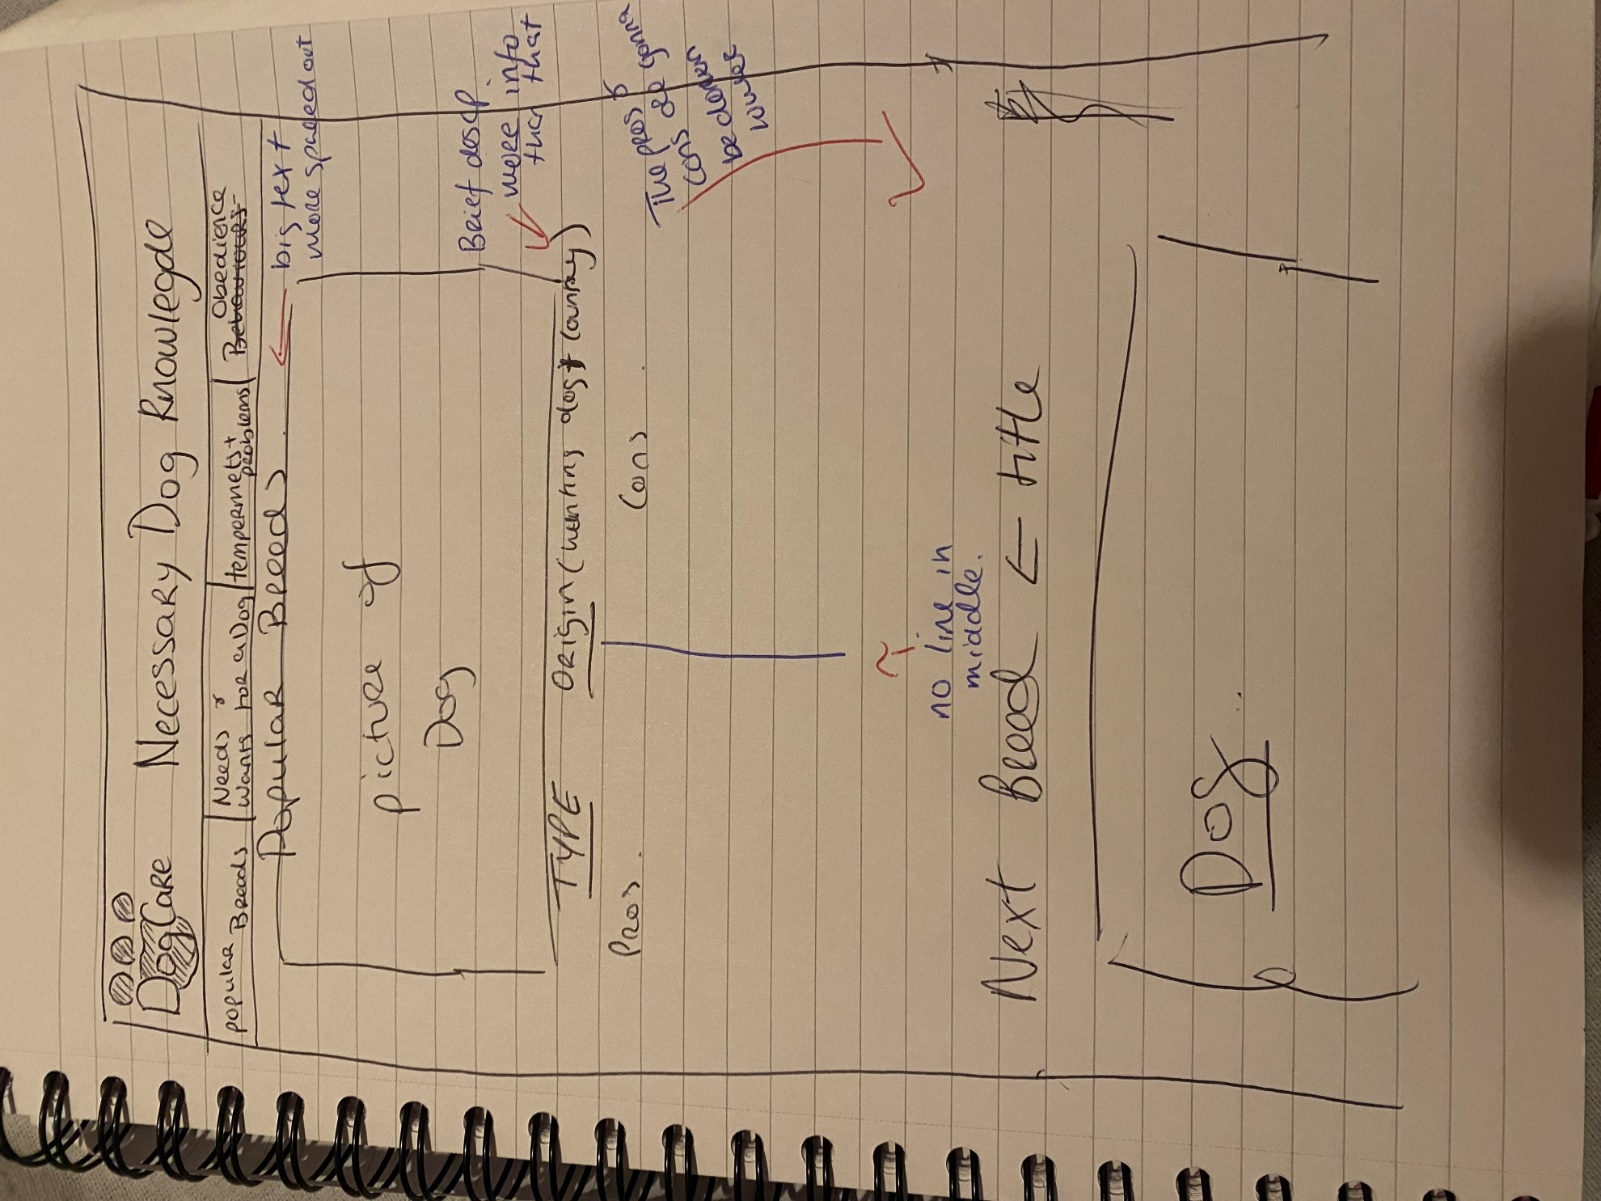 DogCare Necessary Dog Knowlegde
popular Breeds
Needs &
wants for a Dog
tempermets +
problems
Obedience
Behaviours
Popular Breeds
big text
more spaced out
picture of
Dog
Brief descp
more info
then that
TYPE ORigin (hunting dog + Country)
Pros
Cons
The pros &
cons are gonna
be down
lower
no line in
middle.
Next Breed ← title
Dog